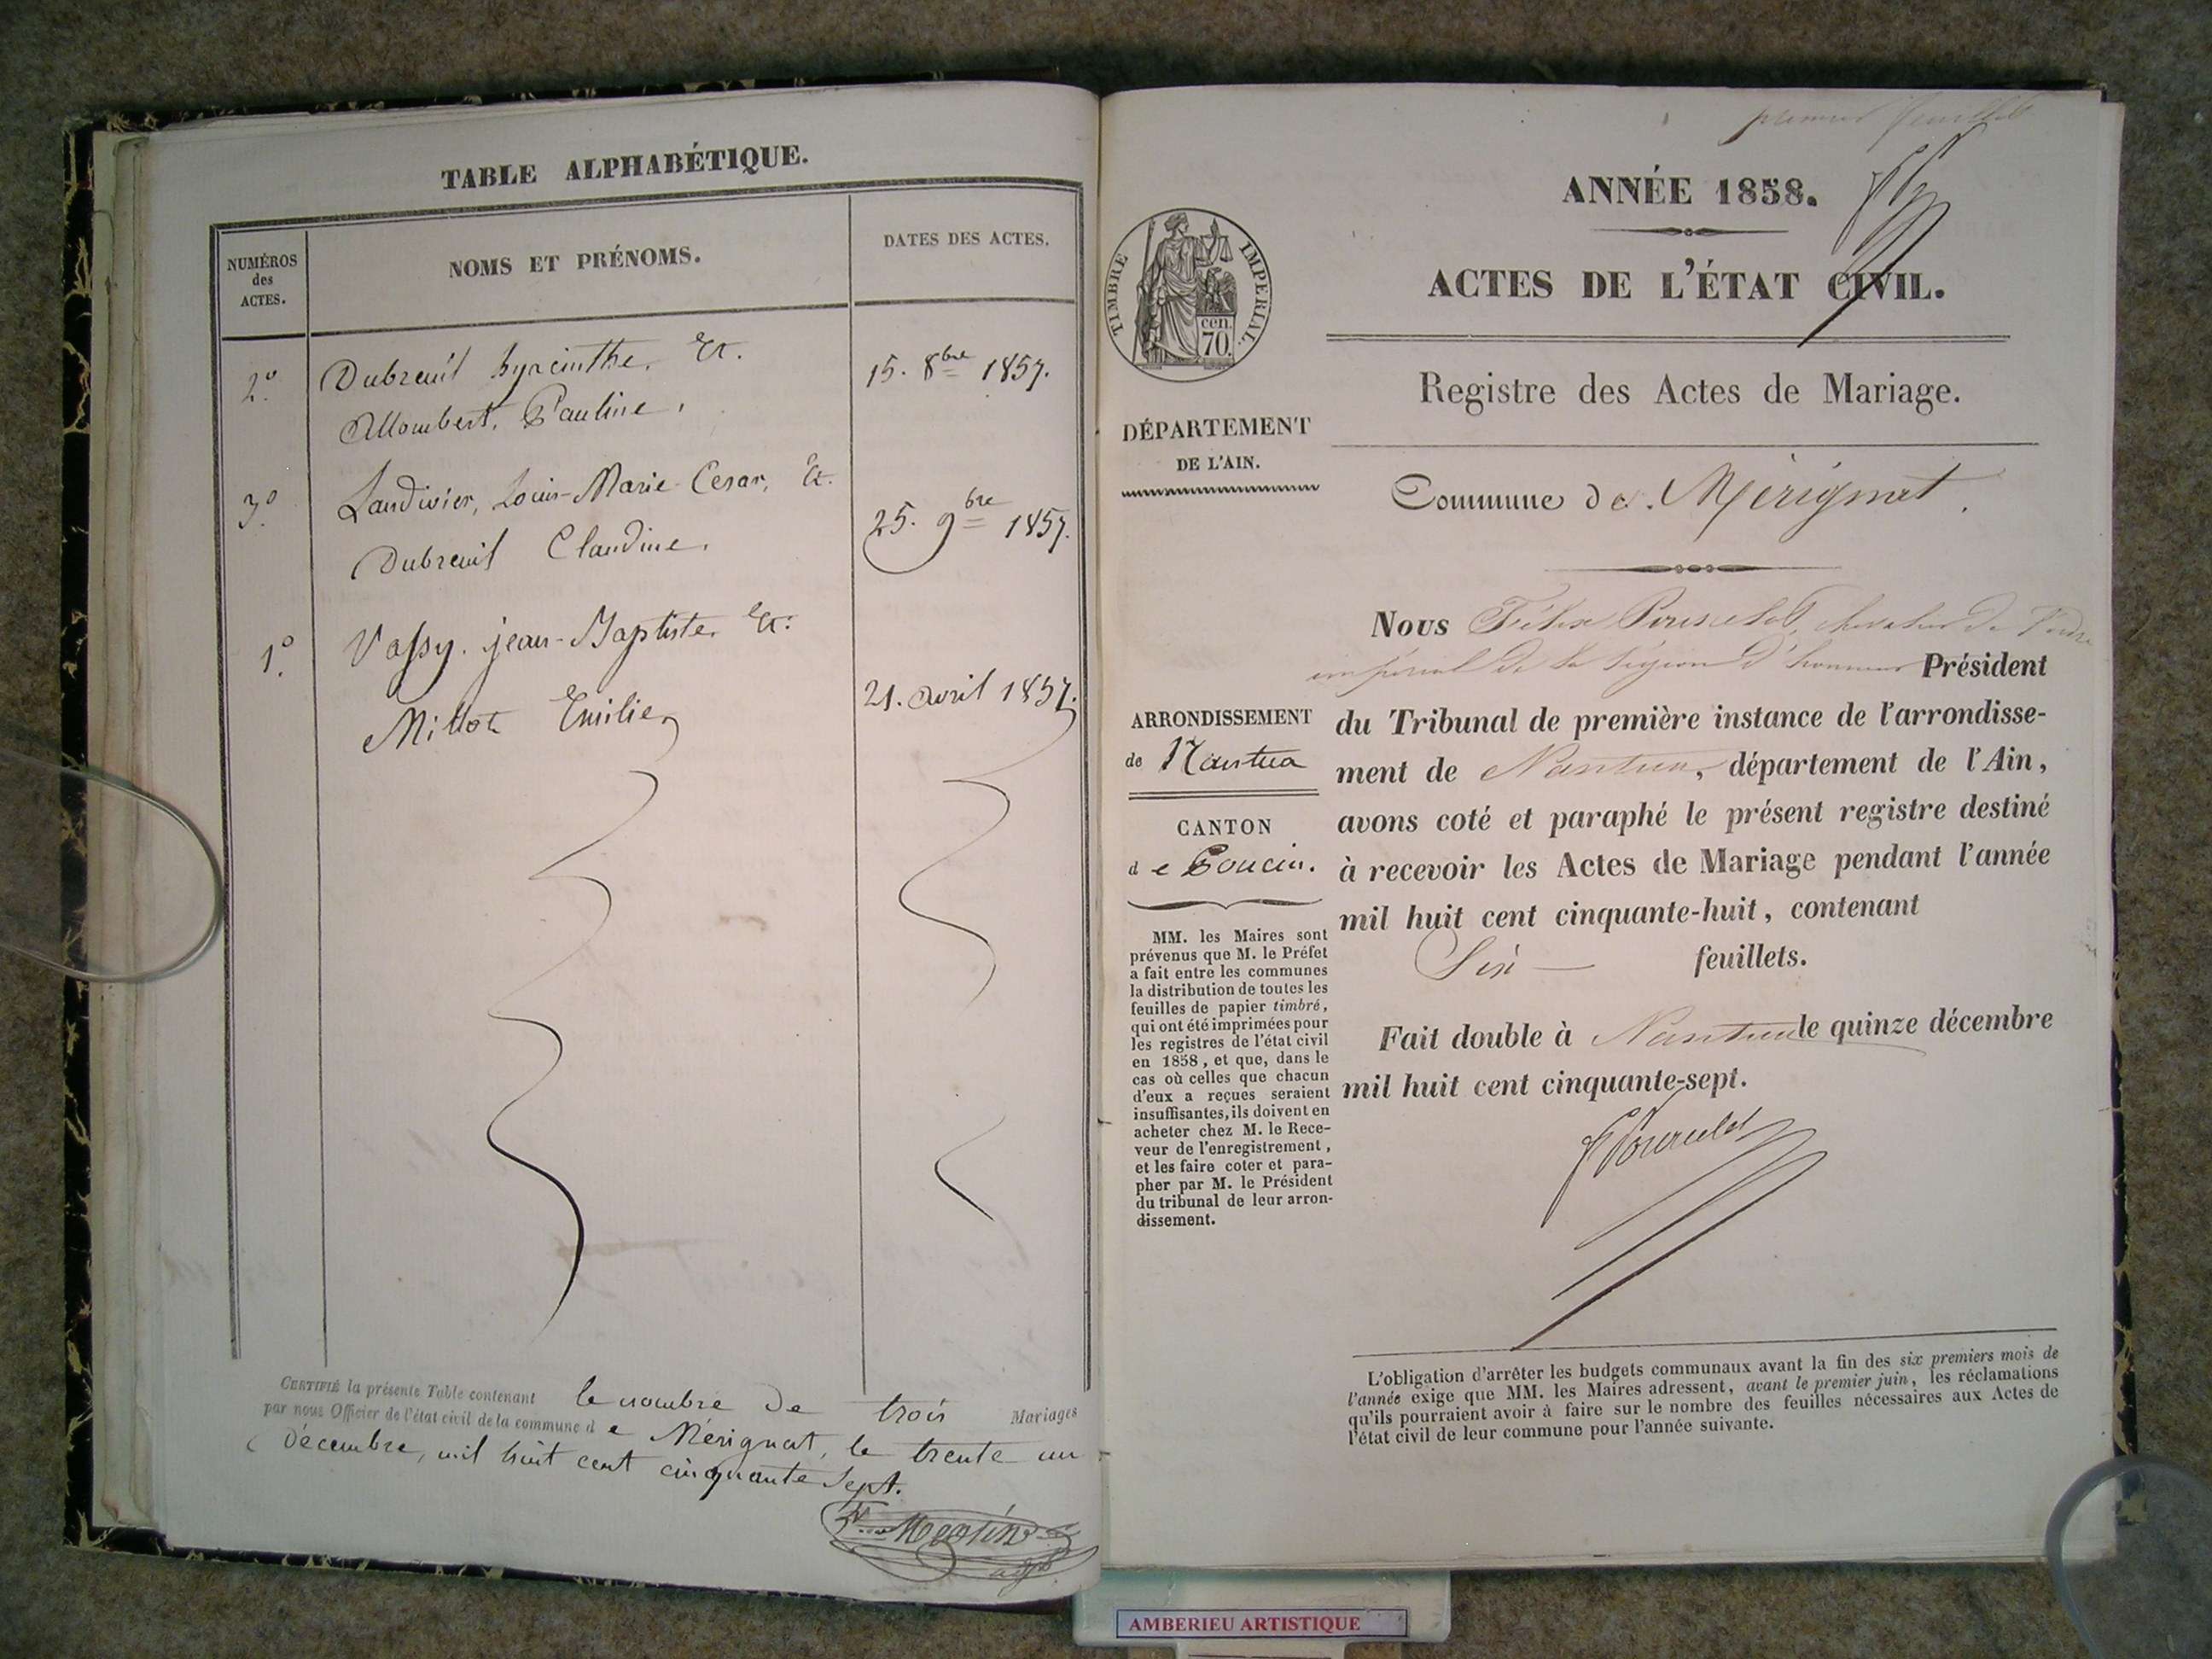 TABLE ALPHABÉTIQUE.
NUMÉROS
des
ACTES.
NOMS ET PRÉNOMS.
DATES DES ACTES.
2°
Dubreuil hyacinthe, Et.
15. 8bre 1857.
Allombert, Pauline,
3°
Landivier, Louis-Marie-Cesar, Et.
25. 9bre 1857.
Dubreuil Claudine.
1°
Vassy. jean-Baptiste, Et.
Millot Emilie,
21. avril 1857.
CERTIFIÉ la présente Table contenant le nombre de trois Mariages
par nous Officier de l'état civil de la commune de Mérignat, le trente un
décembre, mil huit cent cinquante sept.
premier feuillet
ANNÉE 1858.
ACTES DE L'ÉTAT CIVIL.
TIMBRE IMPERIAL.
cen.
70.
Registre des Actes de Mariage.
DÉPARTEMENT
DE L'AIN.
Commune de Mérignat.
Nous Félix chevalier de l'ordre
impérial de la légion d'honneur Président
du Tribunal de première instance de l'arrondisse-
ment de Nantua, département de l'Ain,
avons coté et paraphé le présent registre destiné
à recevoir les Actes de Mariage pendant l'année
mil huit cent cinquante-huit, contenant
Six feuillets.
Fait double à Nantua le quinze décembre
mil huit cent cinquante-sept.
ARRONDISSEMENT
de Nantua
CANTON
de Poncin.
MM. les Maires sont
prévenus que M. le Préfet
a fait entre les communes
la distribution de toutes les
feuilles de papier timbré,
qui ont été imprimées pour
les registres de l'état civil
en 1858, et que, dans le
cas où celles que chacun
d'eux a reçues seraient
insuffisantes, ils doivent en
acheter chez M. le Rece-
veur de l'enregistrement,
et les faire coter et para-
pher par M. le Président
du tribunal de leur arron-
dissement.
L'obligation d'arrêter les budgets communaux avant la fin des six premiers mois de
l'année exige que MM. les Maires adressent, avant le premier juin, les réclamations
qu'ils pourraient avoir à faire sur le nombre des feuilles nécessaires aux Actes de
l'état civil de leur commune pour l'année suivante.
AMBERIEU ARTISTIQUE